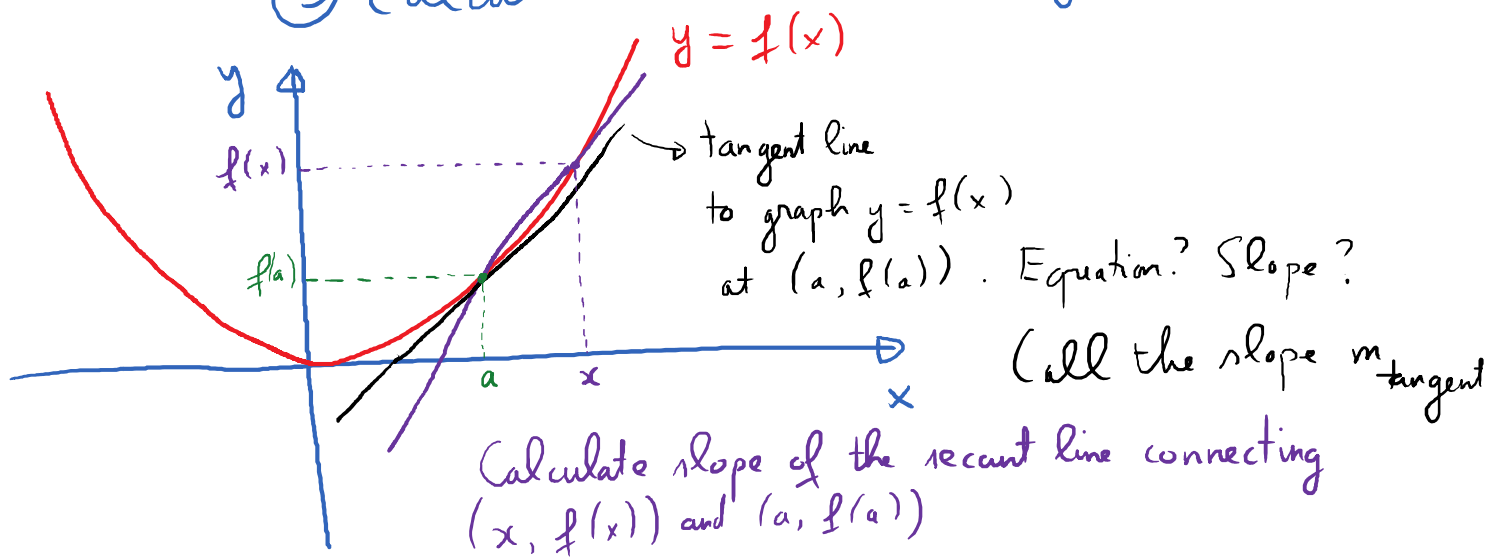 y = f(x)
y
f(x)
tangent line
to graph y = f(x)
f(a)
at (a, f(a)). Equation? Slope?
Call the slope m tangent
a
x
x
Calculate slope of the secant line connecting
(x, f(x)) and (a, f(a))